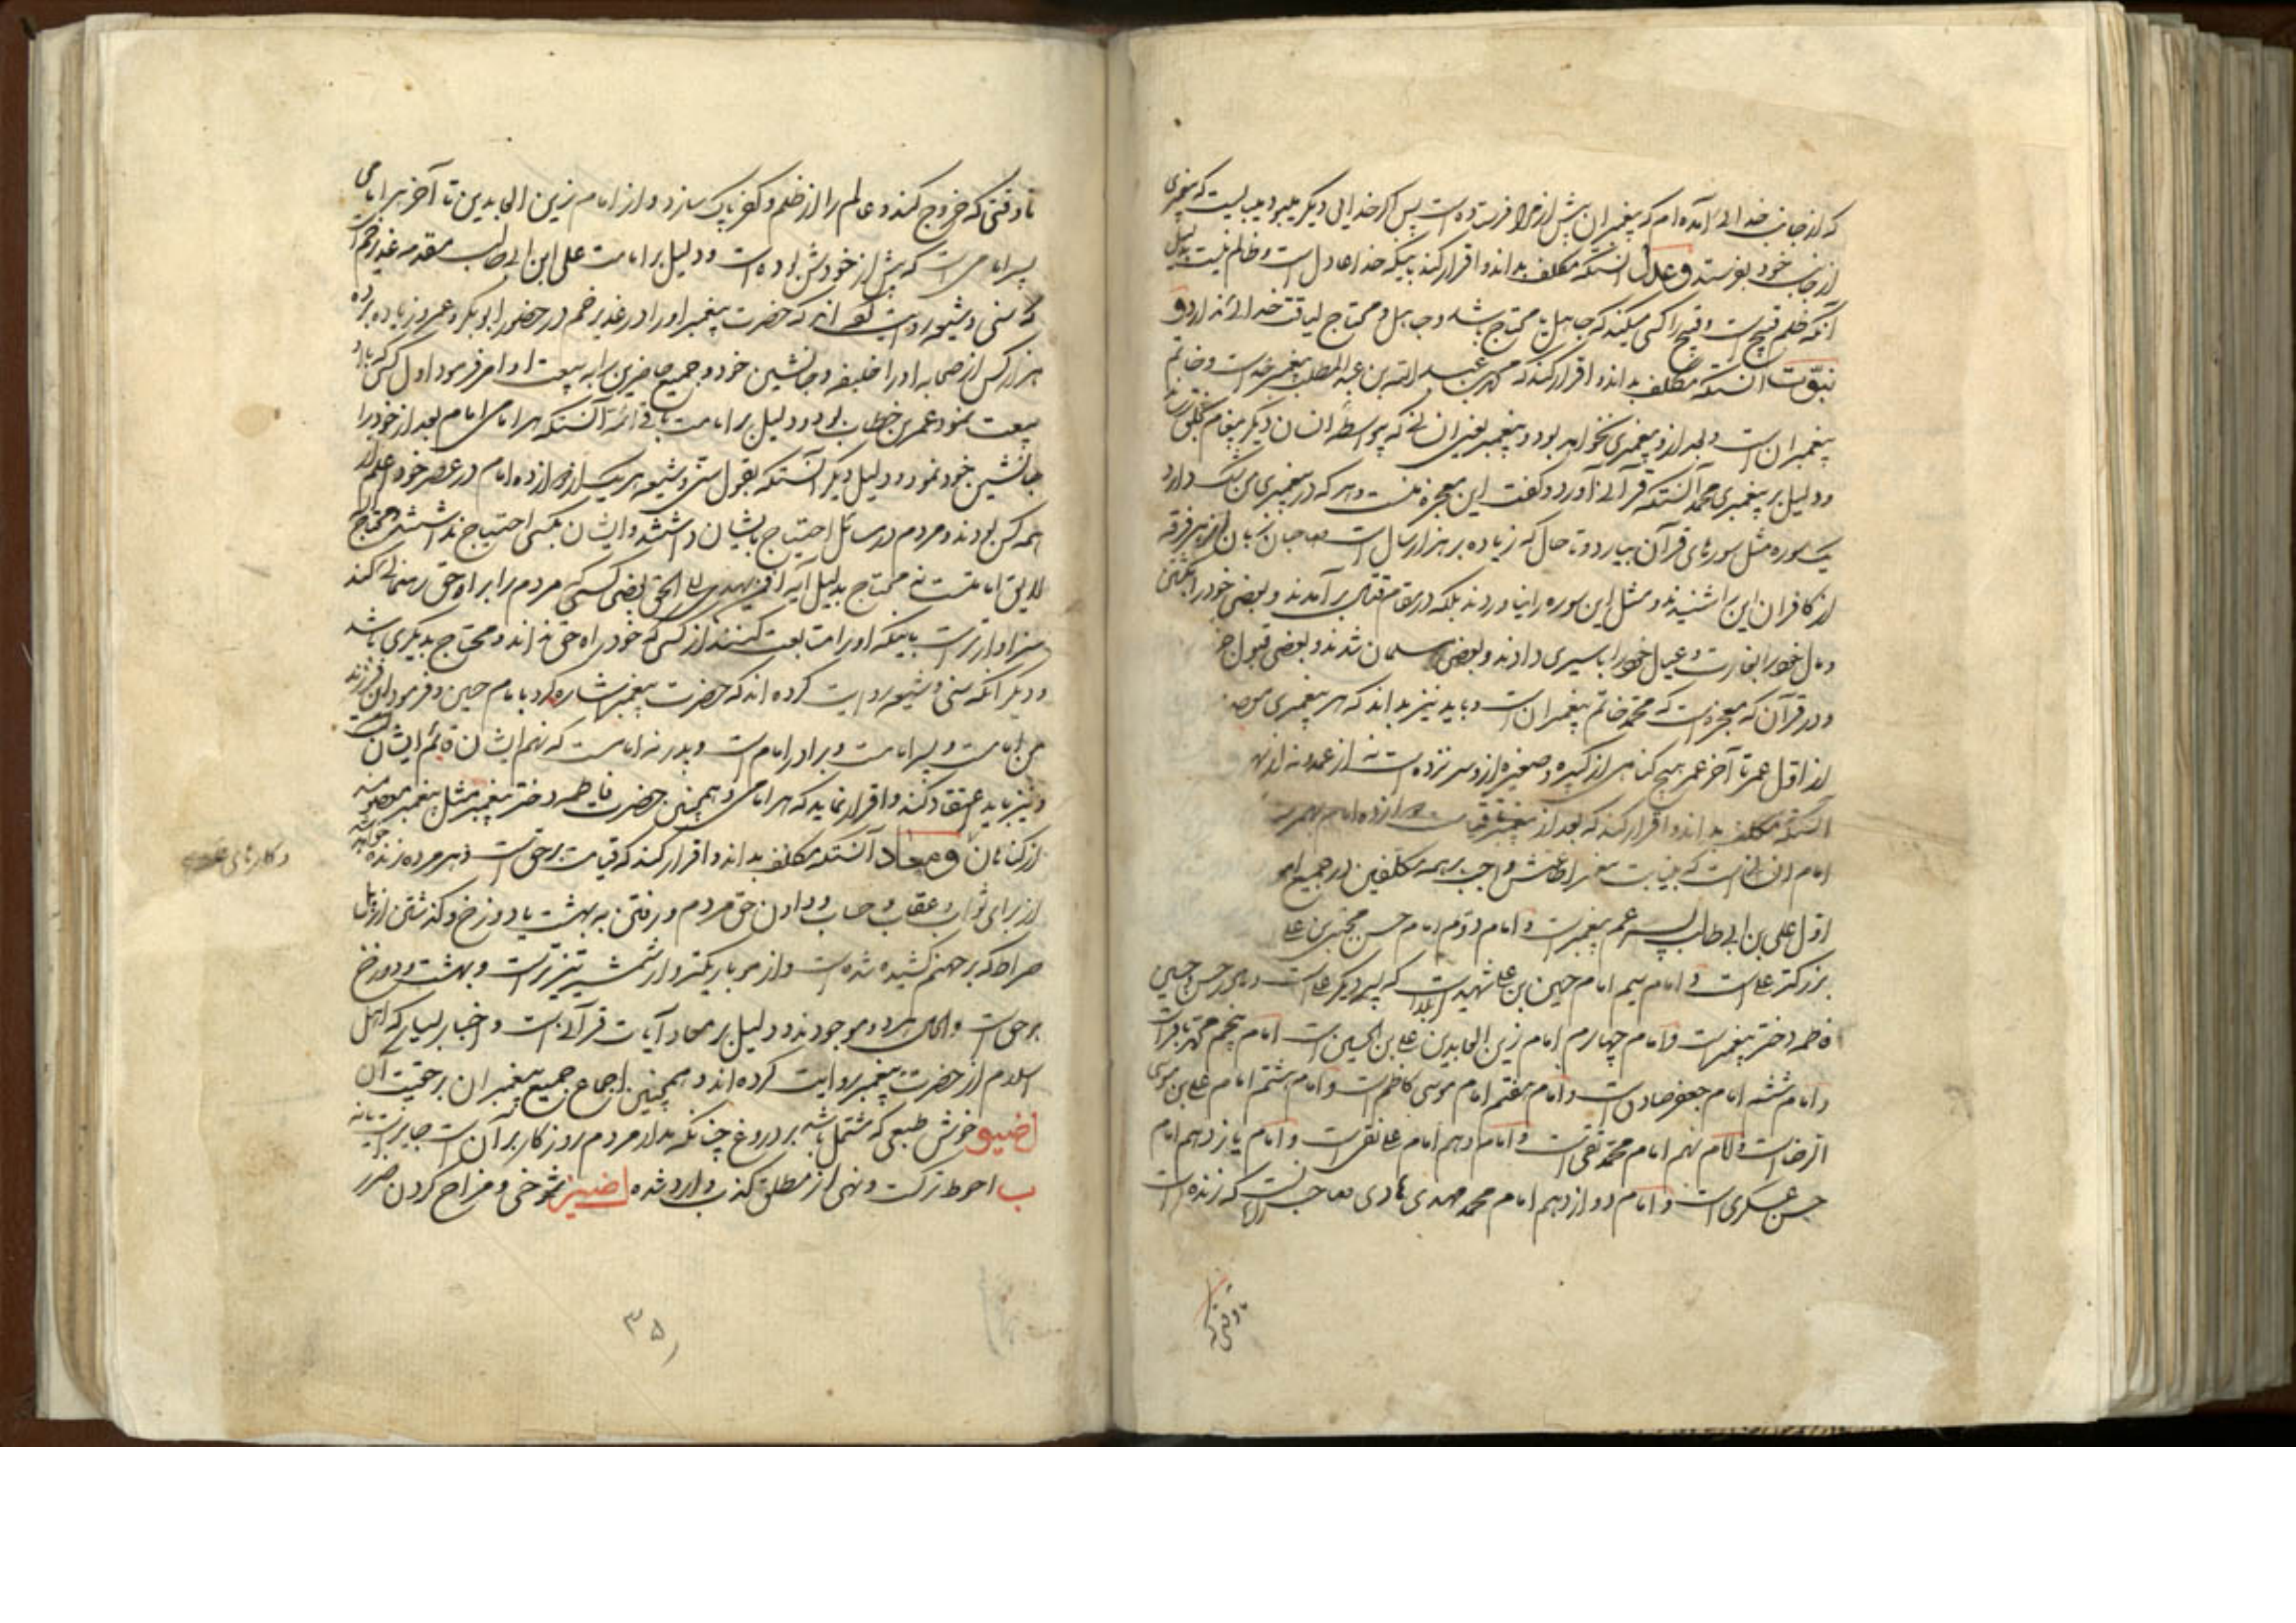 که از جانب خدائی آمده‌ام که پیغمبران پیش از مرا فرستاده است پس اگر خدایی دیگر میبود میبایست که پیغمبری
از جانب خود بفرستد و عدل آنستکه مکلف بداند و اقرار کند باینکه خدا عادل است و ظالم نیست بدلیل
آنکه ظلم قبیح است و قبیح را کسی میکند که جاهل یا محتاج باشد و جاهل و محتاج لیاقت خدائی ندارد و
نبوّت آنستکه مکلف بداند و اقرار کند که محمد بن عبد الله بن عبد المطلب پیغمبر خداست و خاتم
پیغمبران است و بعد از او پیغمبری نخواهد بود و پیغمبر یعنی انسانی که بیواسطهٔ انسان دیگر پیغام بخلق
و دلیل بر پیغمبری محمد آنستکه قرآنی آورد و گفت این معجزه منست و هر که در پیغمبری من شک دارد
یک سوره مثل سورهای قرآن بیارد و تا حال که زیاده بر هزار سال است صاحبان زبان از هر فرقه
از کافران این را شنیدند و مثل این سوره را نیاوردند بلکه در مقام قتال بر آمدند و بعضی خود را بکشتن
و مال خود را بغارت و عیال خود را باسیری دادند و بعضی مسلمان شدند و بعضی قبول
و در قرآن که معجزه است که محمّد خاتم پیغمبران است و باید نیز بداند که هر پیغمبری
از اوّل عمر تا آخر عمر هیچ گناهی از کبیره و صغیره از او سر نزده است نه از عمد و نه از
آنستکه مکلف بداند و اقرار کند که بعد از پیغمبر تا قیامت دوازده امام
امام انسانی است که بنیابت پیغمبر اطاعتش واجب بر همه مکلفین در جمیع
اوّل علی بن ابی طالب پسر عم پیغمبر است و امام دوّم امام حسن مجتبی بن علی
بزرگتر علی است و امام سیم امام حسین بن علی شهید کربلاست که پسر دیگر علی است و مادر حسن و حسین
فاطمه دختر پیغمبر است و امام چهارم امام زین العابدین علی بن الحسین است امام پنجم محمد باقر است
و امام ششم امام جعفر صادق است و امام هفتم امام موسی کاظم است و امام هشتم امام علی بن موسی
الرضا است و امام نهم امام محمّد تقی است و امام دهم امام علی نقی است و امام یازدهم امام
حسن عسکری است و امام دوازدهم امام محمد مهدی هادی صاحب الزمان است که زنده است
تا وقتی که
تا وقتی که خروج کند و عالم را از ظلم و کفر پاک سازد و از امام زین العابدین تا آخر هر امامی
پسر امامی است که پیش از خودش بوده است و دلیل بر امامت علی ابن ابی طالب مقدمه غدیر خم است
که سنی و شیعه روایت کرده‌اند که حضرت پیغمبر او را در غدیر خم در حضور ابوبکر و عمر و زیاده بر ده
هزار کس از صحابه او را خلیفه و جانشین خود و جمیع حاضرین را به بیعت او امر فرمود اول کسی که باو
بیعت نمود عمر بن خطاب بود و دلیل بر امامت باقی ائمّه آنستکه هر امامی امام بعد از خود را
جانشین خود نمود و دلیل دیگر آنستکه بقول سنّی و شیعه هر یک از دوازده امام در عصر خود اعلم از
همه کس بودند و مردم در مسائل احتیاج بایشان داشتند و ایشان بکسی احتیاج نداشتند و محتاج الیه
لایق امامتست نه محتاج بدلیل آیه افمن یهدی الی الحق یعنی کسی که مردم را براه حق رهنمائی کند
سزاوارتر است باینکه او را متابعت کنند از کسی که خود راه حق نداند و محتاج بدیگری باشد
و دیگر آنکه سنی و شیعه روایت کرده‌اند که حضرت پیغمبر اشاره کرد بامام حسین و فرمود این فرزند
من امام است و پسر امام است و برادر امام است و پدر نه امام است که نهم ایشان قائم ایشان است
و نیز باید اعتقاد کند و اقرار نماید که هر امامی و همچنین حضرت فاطمه دختر پیغمبر مثل پیغمبر معصومند
از گناهان و معاد آنستکه مکلف بداند و اقرار کند که قیامت بر حق است و هر مرده زنده خواهد شد
از برای ثواب و عقاب و حساب و دادن حق مردم و رفتن به بهشت یا دوزخ و گذشتن از پل
صراط که بر جهنم کشیده شده است و از مو باریکتر و از شمشیر تیزتر است و بهشت و دوزخ
بر حق است و الحال هر دو موجودند و دلیل بر معاد آیات قرآنی است و اخبار بسیار که اهل
اسلام از حضرت پیغمبر روایت کرده‌اند و همچنین اجماع جمیع پیغمبران بر حقیت آن
خوش طبعی که مشتمل باشد بر دروغ چنانکه مدار مردم روزگار بر آن است جایز است یا نه
ب احوط ترکست و نهی از مطلق کذب وارد شده شوخی و مزاح کردن ضرر
و کارهای
۳۵